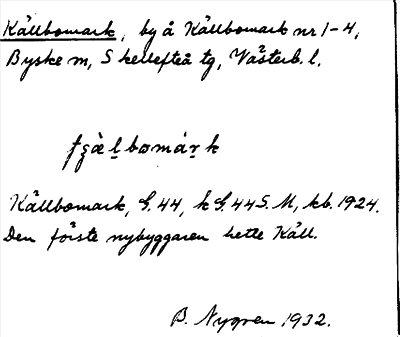 Källbomark, by å Källbomark nr 1-4,
Byske sn, Skellefteå tg, Västerb. l.
Källbomark, G. 44, k G. 44 S. M, kb. 1924.
Den förste nybyggaren hette Käll.
B. Nygren 1932.